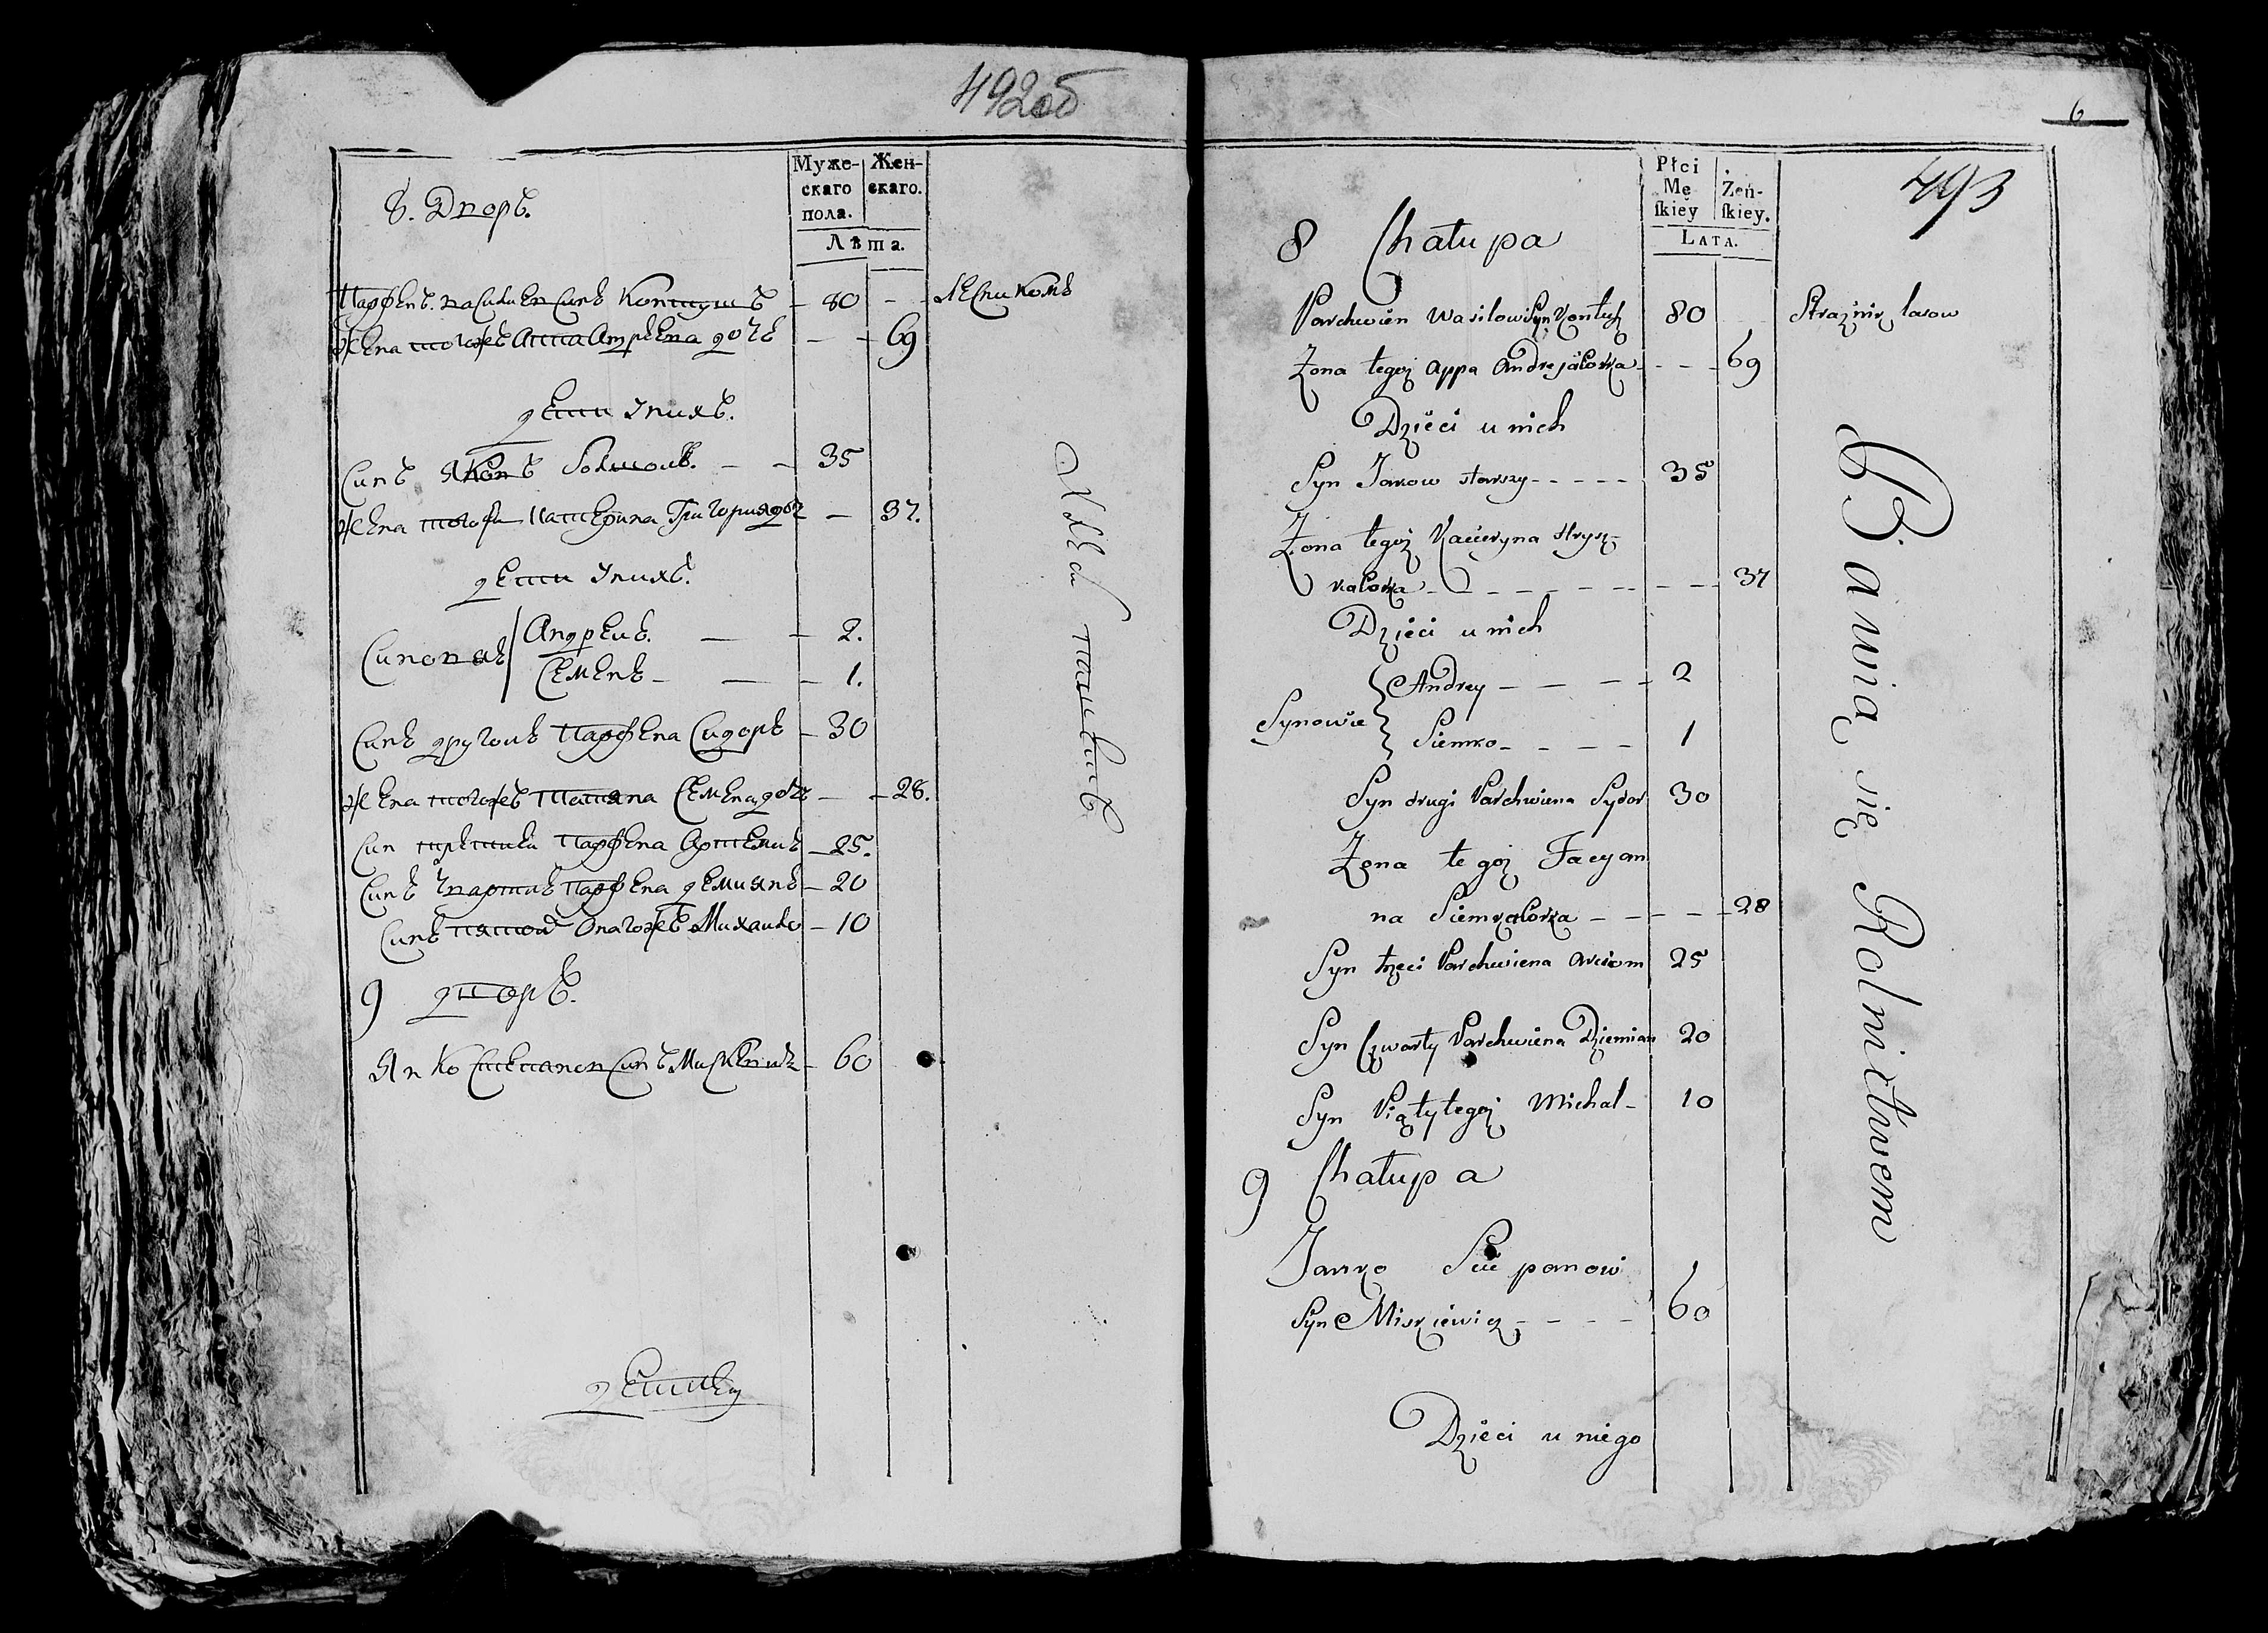 492об
Муже-
скаго
пола.
Жен-
скаго.
Лѣта.
8. Дворъ.
Парфенъ Василиев Синъ — 80 — Лесникомъ
Жена тогожъ Анна Андрѣева дочъ — — 69
дети Унихъ.
Синъ Яковъ — — 35
Жена тогожъ Катерина Григория доч — 37.
дети Унихъ.
Синовя
Андрей. — — 2.
Семенъ — — — 1.
Синъ другой Парфена Сидоръ — 30
Жена тогожъ Татяна Семена дочъ — — 28.
Син третий Парфена Артемий — 25.
Синъ Парфена Демиянъ — 20
Синъ пятой Онагожъ Михаило — 10
9 дворъ.
Янко Степанов Синъ Мискевичъ — 60
дети Ему
6
493
Płci
Mę
ſkiey
Żeń-
ſkiey.
LATA.
8 Chałupa
Parchwien Wasilow Syn Kontush 80 Strażnik lasow
Zona tegoż Anna Andrejałowka - - - 69
Dzieci u nich
Syn Jakow starszy - - - - - 35
Zona tegoż Kacieryna Hrysz-
kałowka - - - - - - - - - 37
Dzieci u nich
Synowie
Andrey — — — - 2
Siemko - - - - - 1
Syn drugi Parchwiena Sydor 30
Zona tegoż Tacyan
na Siemkałowka - - - - - 28
Syn trzeci Parchwiena Arciom 25
Syn Czwarty Parchwiena Dziemian 20
Syn Piąty tegoż Michał - 10
9 Chałupa
Janko Sciepanow
Syn Miskiewicz - - - - 60
Dzieci u niego
Bawią się Rolnictwem